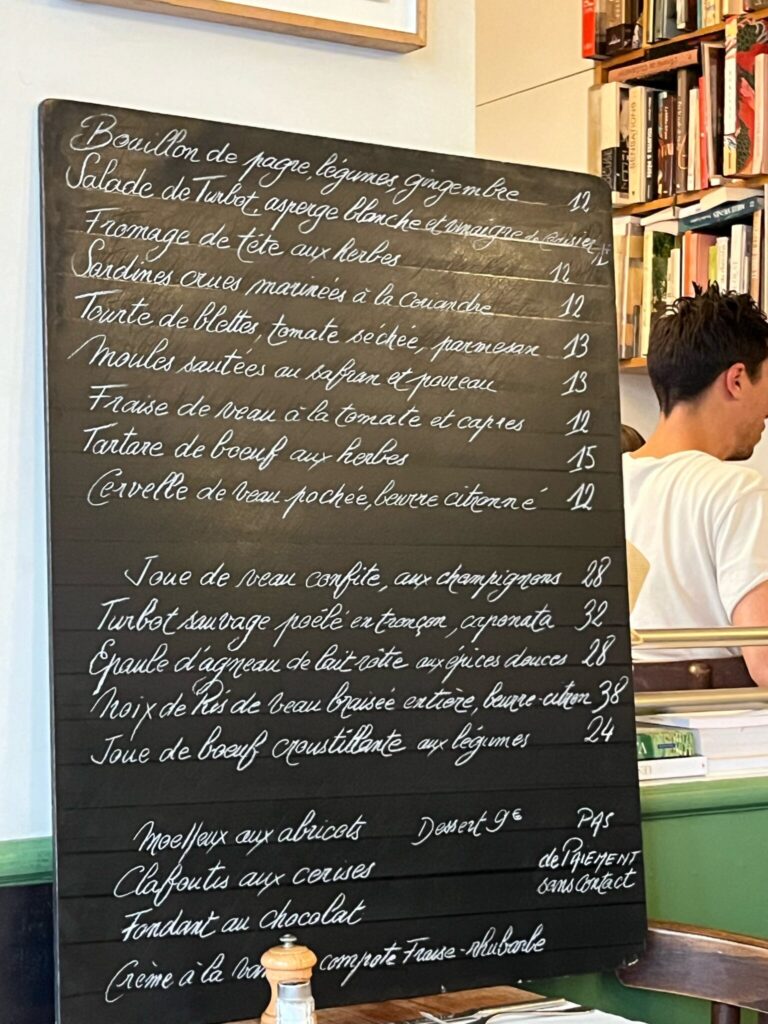 Bouillon de pagre, légumes, gingembre 12
Salade de Turbot, asperge blanche et vinaigre de Cerisier 12
Fromage de tête aux herbes 12
Sardines crues marinées à la Coriandre 12
Tourte de blettes, tomate séchée, parmesan 13
Moules sautées au safran et poireau 13
Fraise de veau à la tomate et capres 12
Tartare de boeuf aux herbes 15
Cervelle de veau pochée, beurre citronné 12
Joue de veau confite, aux champignons 28
Turbot sauvage poêlé en tronçon, caponata 32
Epaule d'agneau de lait rôtie aux épices douces 28
Noix de Ris de veau braisée entière, beurre-citron 38
Joue de boeuf croustillante aux légumes 24
Moelleux aux abricots Dessert 9€ PAS
Clafoutis aux cerises de PAIEMENT
sans contact
Fondant au chocolat
Crème à la compote Fraise-rhubarbe